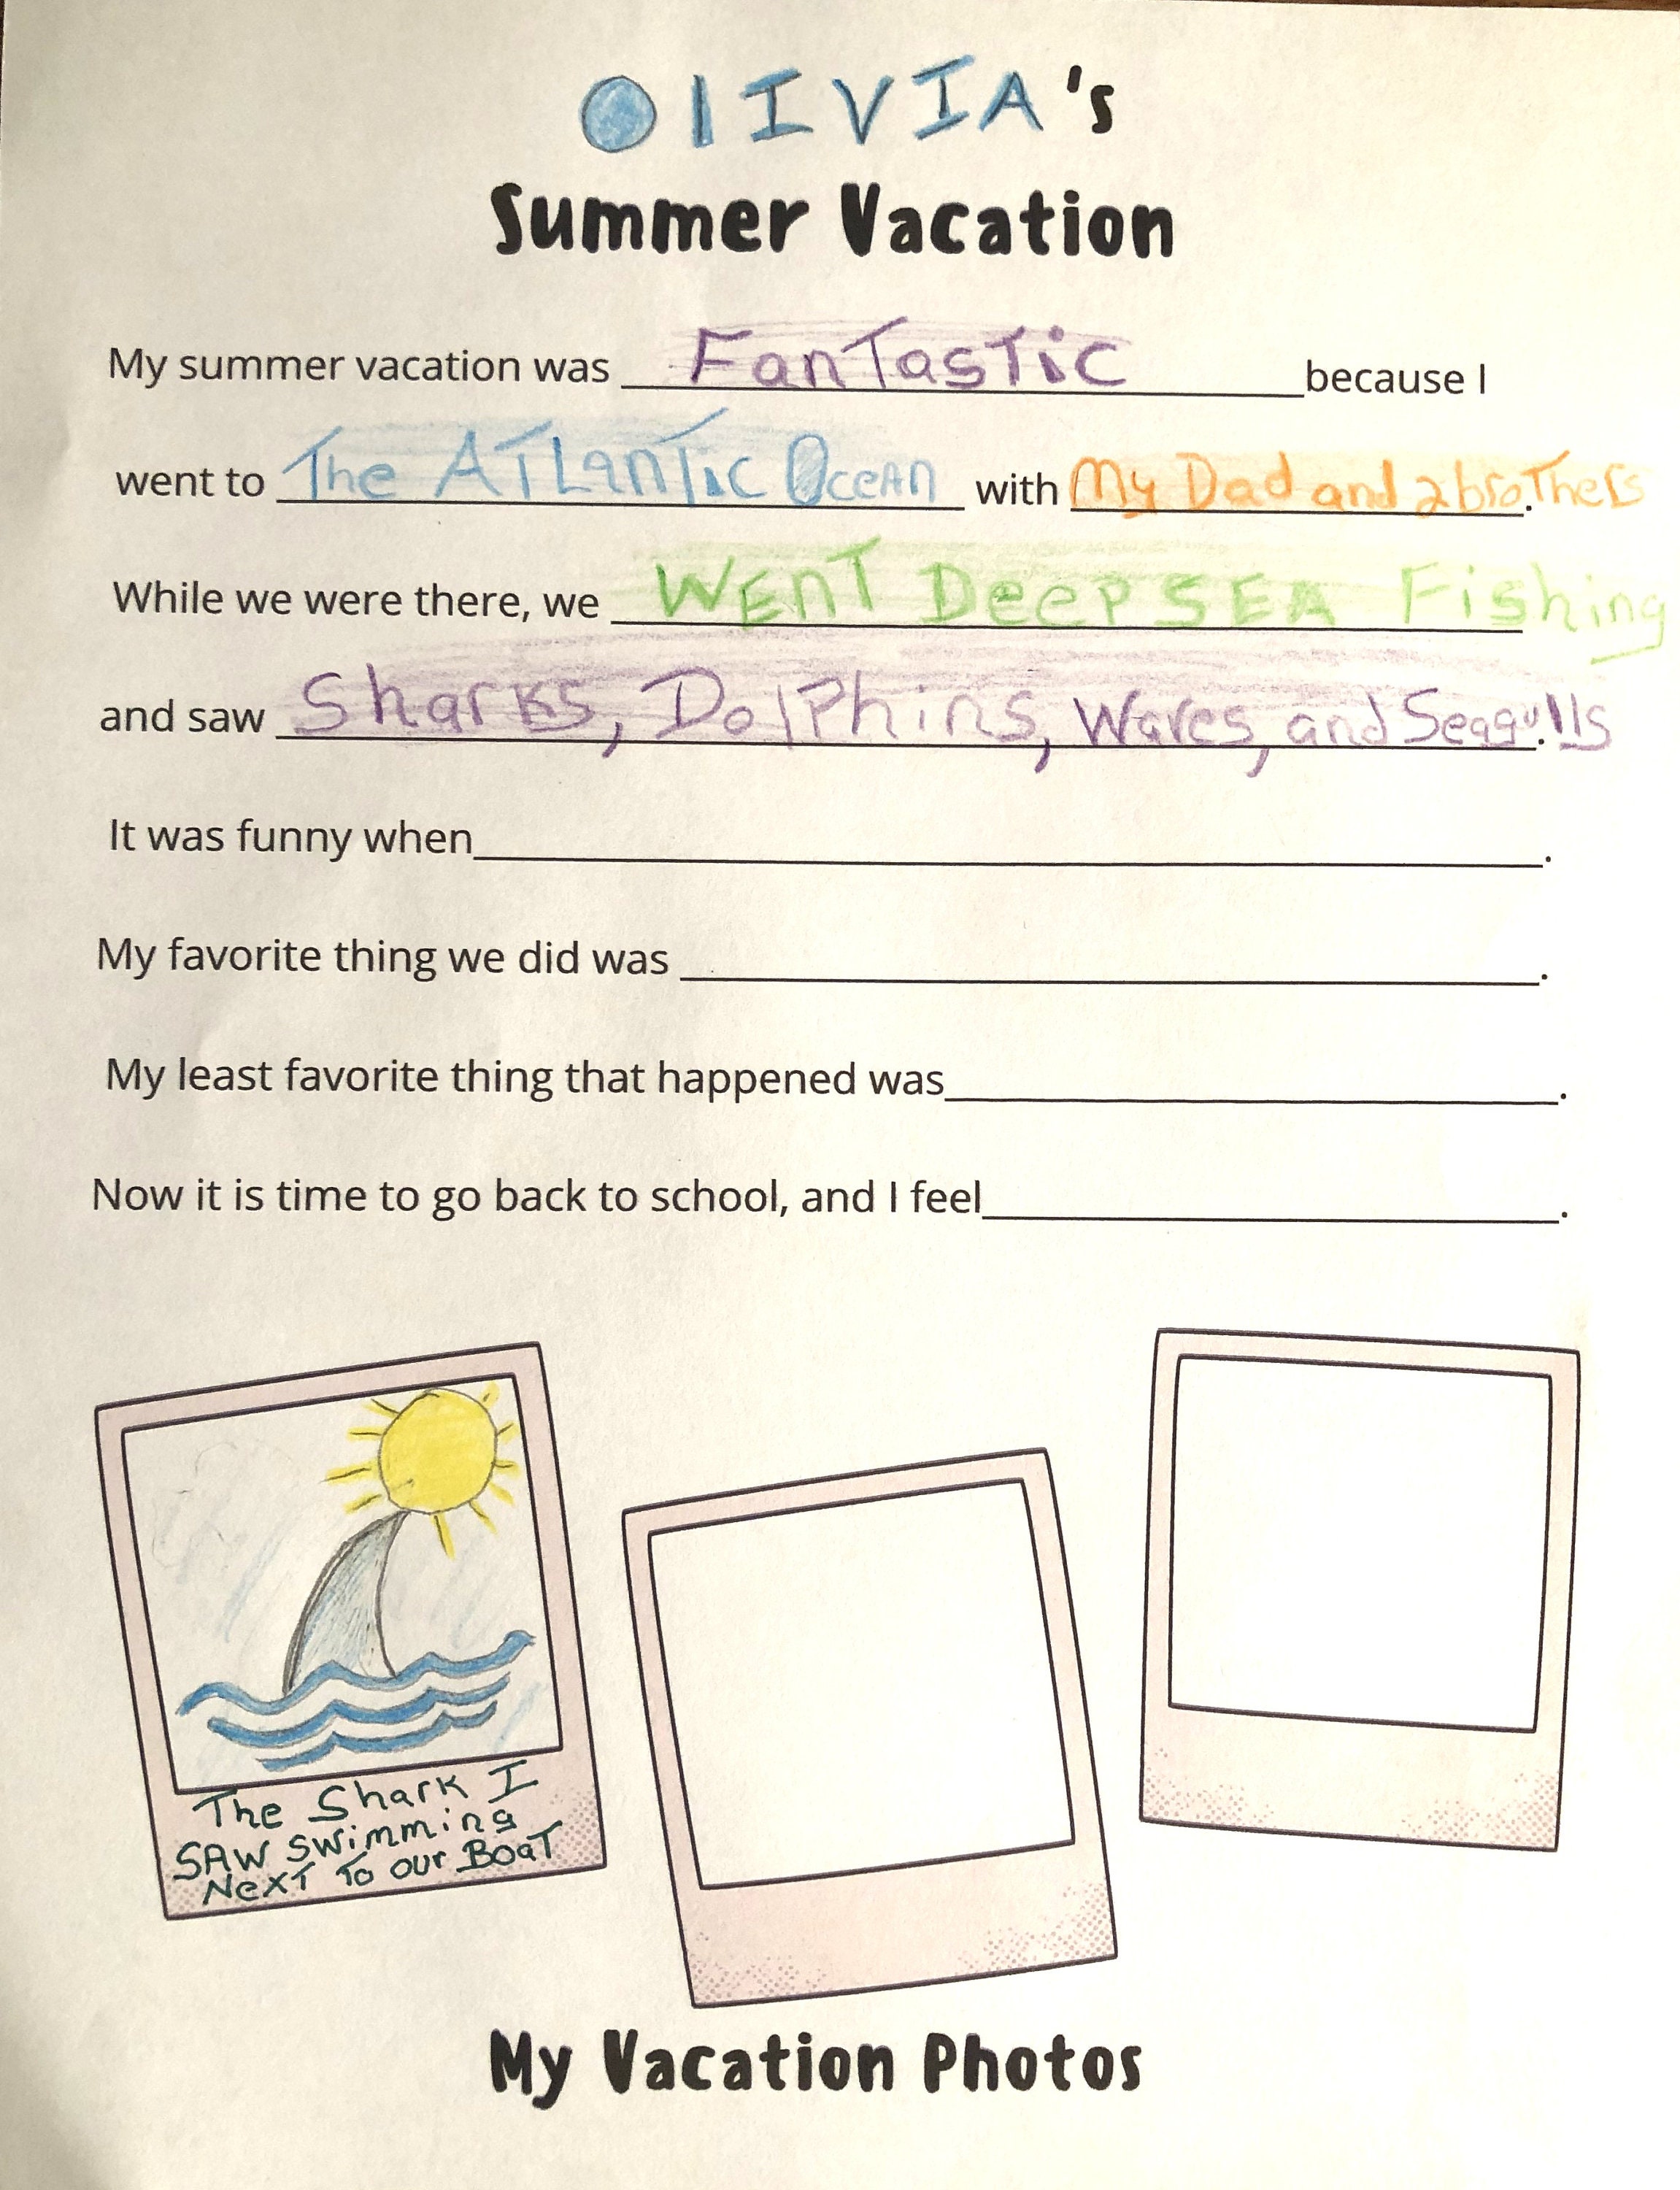 OlIVIA's
Summer Vacation
My summer vacation was FanTasTic because I
went to The ATLanTic OceAn with My Dad and 2 broThers.
While we were there, we WEnT DeeP SEA Fishing
and saw Sharks, DolPhins, Waves, and Seagulls.
It was funny when____.
My favorite thing we did was ____.
My least favorite thing that happened was____.
Now it is time to go back to school, and I feel____.
The Shark I
SAW swimming
NexT To our BoaT
My Vacation Photos